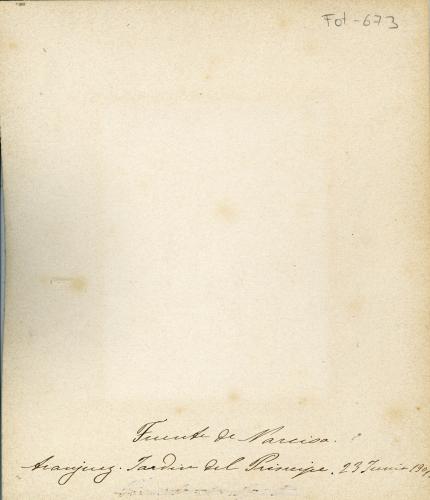 Fot-673
Fuente de Narciso.
Aranjuez. Jardin del Principe. 23 Junio